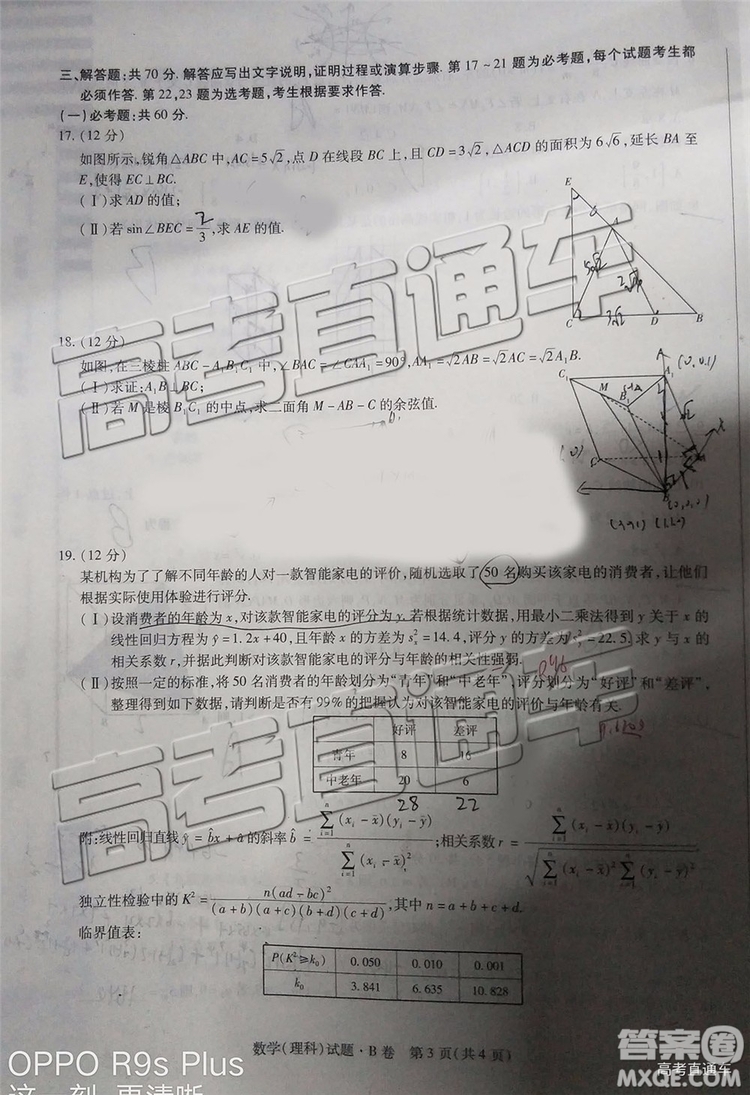 三、解答题:共70分.解答应写出文字说明,证明过程或演算步骤.第17~21题为必考题,每个试题考生都
必须作答.第22,23题为选考题,考生根据要求作答.
(一)必考题:共60分.
17.(12分)
如图所示,锐角△ABC中,AC=5√2,点D在线段BC上,且CD=3√2,△ACD的面积为6√6,延长BA至
E,使得EC⊥BC.
(Ⅰ)求AD的值;
(Ⅱ)若sin∠BEC=2/3,求AE的值.
E
C
D
B
18.(12分)
如图,在三棱柱ABC-A₁B₁C₁中,∠BAC=∠CAA₁=90°,AA₁=√2AB=√2AC=√2A₁B.
(Ⅰ)求证:A₁B⊥BC;
(Ⅱ)若M是棱B₁C₁的中点,求二面角M-AB-C的余弦值.
C₁
M
B₁
A₁
19.(12分)
某机构为了了解不同年龄的人对一款智能家电的评价,随机选取了50名购买该家电的消费者,让他们
根据实际使用体验进行评分.
(Ⅰ)设消费者的年龄为x,对该款智能家电的评分为y.若根据统计数据,用最小二乘法得到y关于x的
线性回归方程为ŷ=1.2x+40,且年龄x的方差为sₓ²=14.4,评分y的方差为s_y²=22.5.求y与x的
相关系数r,并据此判断对该款智能家电的评分与年龄的相关性强弱.
(Ⅱ)按照一定的标准,将50名消费者的年龄划分为“青年”和“中老年”,评分划分为“好评”和“差评”,
整理得到如下数据,请判断是否有99%的把握认为对该智能家电的评价与年龄有关.
好评 差评
青年 8 16
中老年 20 6
28 22
附:线性回归直线ŷ=b̂x+â的斜率b̂=∑ᵢ₌₁ⁿ(xᵢ-x̄)(yᵢ-ȳ)/∑ᵢ₌₁ⁿ(xᵢ-x̄)²;相关系数r=∑ᵢ₌₁ⁿ(xᵢ-x̄)(yᵢ-ȳ)/√(∑ᵢ₌₁ⁿ(xᵢ-x̄)²∑ᵢ₌₁ⁿ(yᵢ-ȳ)²)
独立性检验中的K²=n(ad-bc)²/((a+b)(a+c)(b+d)(c+d)),其中n=a+b+c+d.
临界值表:
P(K²≥k₀) 0.050 0.010 0.001
k₀ 3.841 6.635 10.828
数学(理科)试题·B卷 第3页(共4页)
高考直通车
高考直通车
OPPO R9s Plus
这一刻 更清晰
答案圈
高考直通车
MXQE.COM